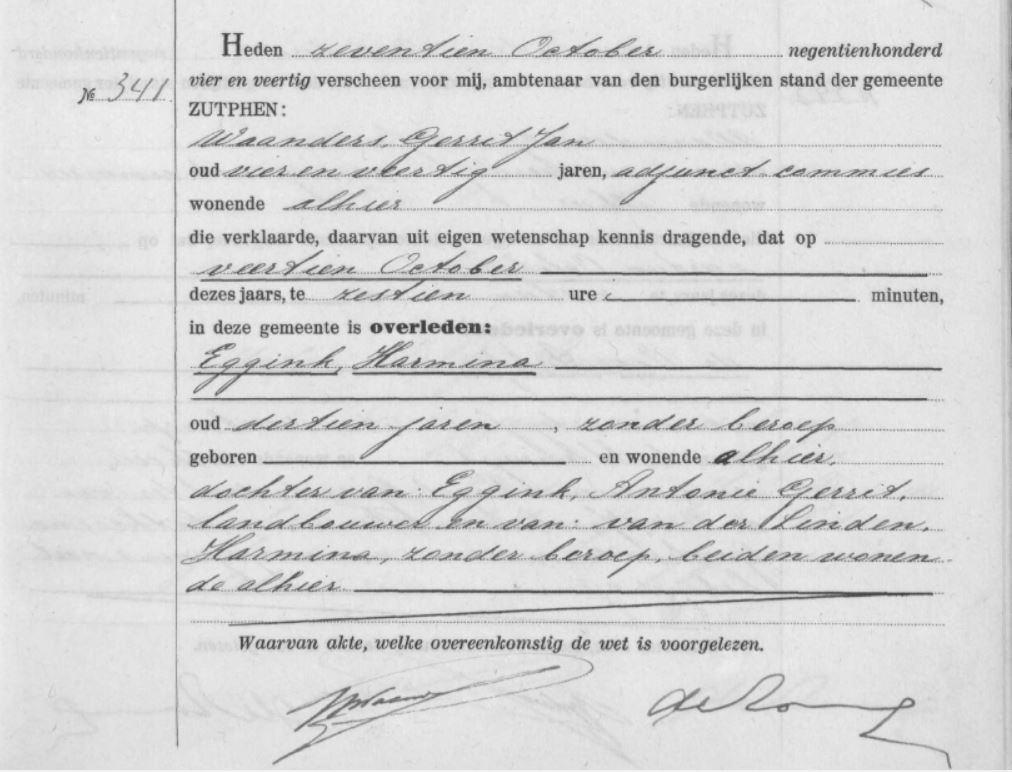 Heden zeventien October negentienhonderd
№ 341. vier en veertig verscheen voor mij, ambtenaar van den burgerlijken stand der gemeente
ZUTPHEN:
Waanders, Gerrit Jan
oud vier en veertig jaren, adjunct commies
wonende alhier
die verklaarde, daarvan uit eigen wetenschap kennis dragende, dat op
veertien October
dezes jaars, te zestien ure, minuten,
in deze gemeente is overleden:
Eggink, Harmina
oud dertien jaren, zonder beroep
geboren en wonende alhier,
dochter van: Eggink, Antonie Gerrit,
landbouwer en van: van der Linden,
Harmina, zonder beroep, beiden wonen-
de alhier
Waarvan akte, welke overeenkomstig de wet is voorgelezen.